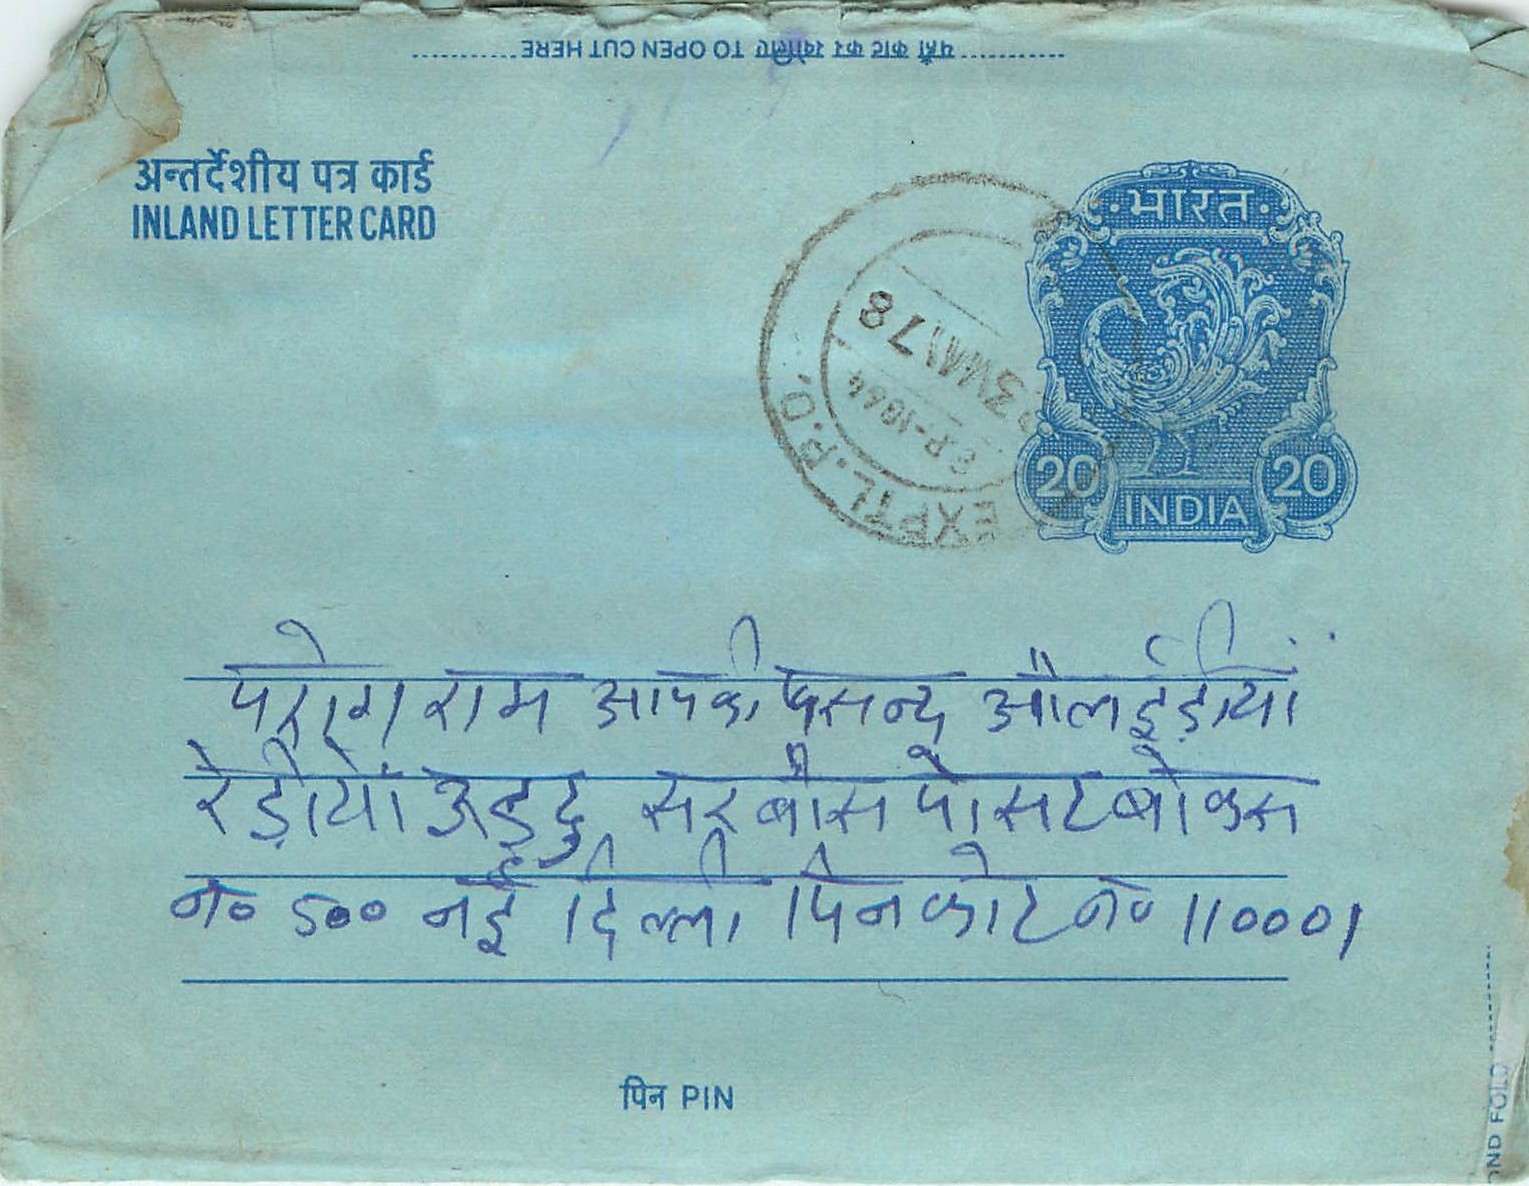 यहाँ काट कर खोलिए TO OPEN CUT HERE
अन्तर्देशीय पत्र कार्ड
INLAND LETTER CARD
भारत
20 20
INDIA
EXPTL. P.O.
78
परोगराम आपकी पसन्द औलईड़ीयां
रेड़ीयों उरदु सरबीस पोसट बोकस
न० 500 नई दिल्ली पिनकोट न० 110001
पिन PIN
OND FOLD